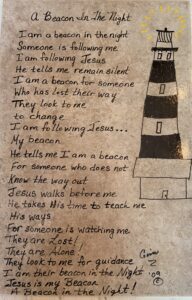 A Beacon In The Night
I am a beacon in the night
Someone is following me
I am following Jesus
He tells me remain silent
I am a beacon for someone
Who has lost their way
They look to me
to change
I am following Jesus...
My beacon
He tells me I am a beacon
For someone who does not
Know the way out
Jesus walks before me
He takes His time to teach me
His ways
For someone is watching me
They are Lost!
They are Alone
They look to me for guidance
I am their beacon in the Night
Jesus is my Beacon
A Beacon in the Night!
'09